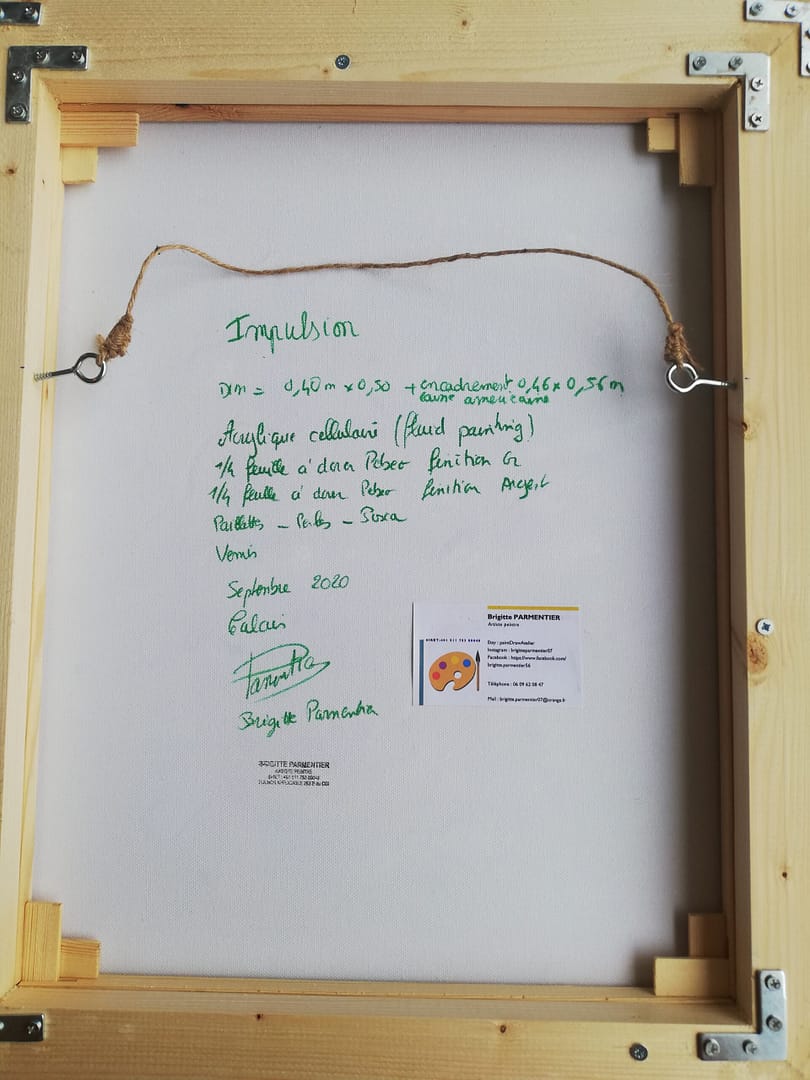 Impulsion
Dim = 0,40 m x 0,50 + encadrement 0,46 x 0,56 m
caisse américaine
Acrylique cellulaire (fluid painting)
1/4 feuille à dorer Pebeo finition Or
1/4 feuille à dorer Pebeo finition Argent
Paillettes - Perles - Posca
Vernis
Septembre 2020
Calais
Brigitte Parmentier
Brigitte PARMENTIER
Artiste peintre
Etsy : paintDrawAtelier
Instagram : brigitteparmentier07
Facebook : https://www.facebook.com/
brigitte.parmentier56
Téléphone : 06 09 62 58 47
Mail : brigitte.parmentier07@orange.fr
BRIGITTE PARMENTIER
ARTISTE PEINTRE